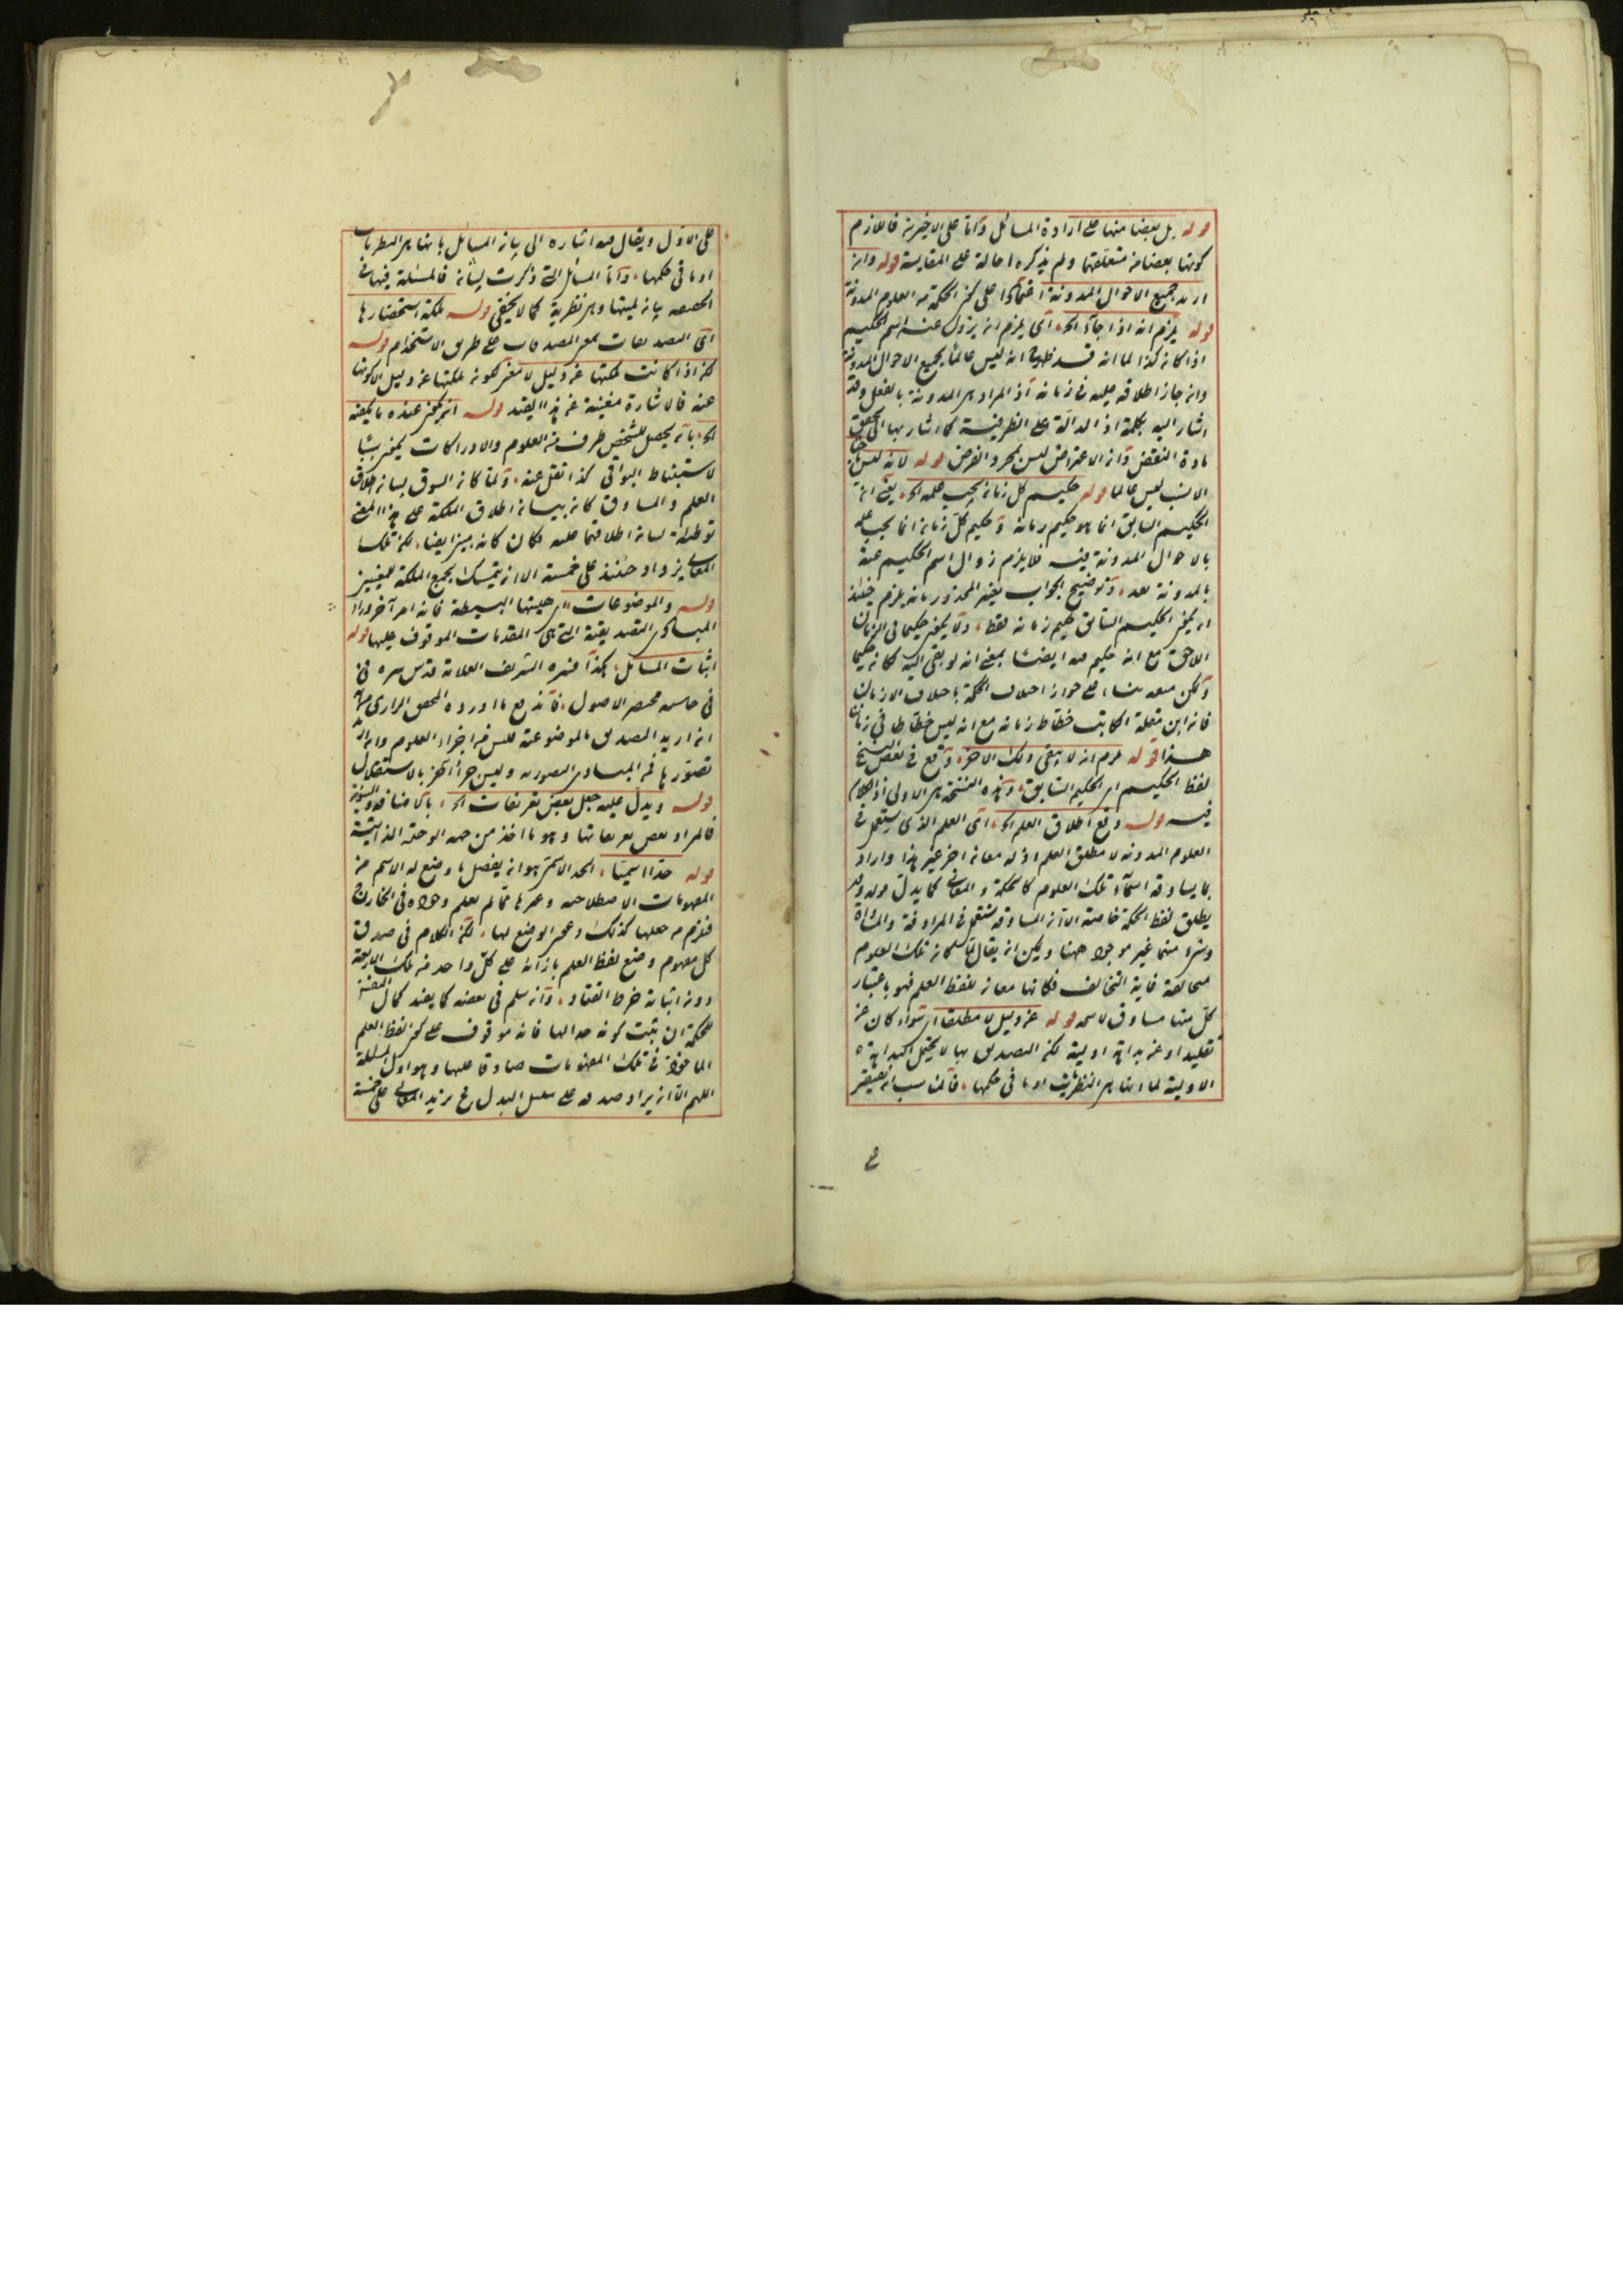 قوله بل بعضا منها على ارادة المسائل وآما على الاخيرين فاللازم
كونها بعضا من متعلقها ولم يذكره احالة على المقايسة قوله وان
اريد جميع الاحوال المدونة اعتمادا على كون الحكمة من العلوم المدونة
قوله يلزم انه اذا جاء الخ آى يلزم ان يزول عنه اسم الحكيم
اذا كان كذا لما انه قد ظهر انه ليس عالما بجميع الاحوال المدونة
وان جاز اطلاقه عليه في زمانه اذ المراد هى المدونة بالفعل وقد
اشار اليه بكلمة اذ الدالة على الظرفية كما اشار بها الى تحقق
مادة النقض وآن الاعتراض ليس بمجرد الفرض قوله لانه ليس
الانسب ليس عالما قوله حكيم كل زمان يجب علمه الخ يعنى ان
الحكيم السابق انما هو حكيم زمانه وحكيم كل زمان انما يجب علمه
بالاحوال المدونة فيه فلا يلزم زوال اسم الحكيم عنه
بالمدونة بعد وتوضيح الجواب بغير المحذور بانه يلزم حينئذ
ان يكون الحكيم السابق حكيم زمانه فقط ولا يكون حكيما في الزمان
اللاحق مع انه حكيم فيه ايضا بمعنى انه لو بقى اليه لكان حكيما
ولكن منعه بناء على جواز اختلاف الحكمة باختلاف الازمان
فان ابن مقلة الكاتب خطاط زمانه مع انه ليس خطاطا في زمان
هذا قوله لزم ان لا يبقى ذلك الاخر وقع في بعض النسخ
لفظ الحكيم اى الحكيم السابق وهذه النسخة هى الاولى اذ الكلام
فيه قوله وقع اطلاق العلم الخ آى العلم الذى يستعمل في
العلوم المدونة لا مطلق العلم اذ له معان اخر غير هذا واراد
بما يساوقه اسماء تلك العلوم كالحكمة والمعانى كما يدل قوله وقد
يطلق لفظ الحكمة خاصة الا ان المساوقة تستعمل في المرادفة والمساواة
وشىء منهما غير موجود ههنا ويمكن ان يقال لما كان تلك العلوم
متخالفة غاية التخالف فكانها معان للفظ العلم فهو باعتبار
كل منها مساوق لاسمه قوله عن دليل لا مطلقا اى سواء كان عن
تقليد او عن بداهة اولية لكن التصديق بها لا يحتمل البداهة
الاولية لما انها هى النظريات او ما في حكمها فالمناسب ان يقتصر
على الاول ويقال فيه اشارة الى بيان المسائل بانها هى النظريات
او ما في حكمها وآما المسائل التى ذكرت لبيان فالمسئلة فيها في
الحقيقة بيان لميتها وهى نظرية كما لا يخفى قوله ملكة استحضارها
آى التصديقات بمعنى المصدقات على طريق الاستخدام قوله
لكن اذا كانت ملكتها عن دليل لا معنى لكون ملكتها عن دليل الا كونها
عنه فالاشارة مغنية عن هذا القيد قوله ان يكون عنده ما يكفيه
الخ بآن يحصل للشخص طرف من العلوم والادراكات يكون سببا
لاستنباط البواقى كذا نقل عنه ولما كان السوق لبيان اطلاق
العلم والمساوق كان بيان اطلاق الملكة على هذا المعنى
توطئة لبيان اطلاقهما عليه فكان كانه مبين ايضا لكن تلك
المعانى يزداد حينئذ على خمسة الا ان يتمسك بجمع الملكة للمعنيين
قوله والموضوعات اى هليتها البسيطة فانه امر آخر وراء
المبادى التصديقية التى هى المقدمات الموقوف عليها قوله
اثبات المسائل هكذا فسره الشريف العلامة قدس سره في
في حاشية مختصر الاصول فاندفع ما اورده المحقق الرازى من
انه ان اريد التصديق بالموضوعية فليس من اجزاء العلوم وان اريد
تصورها فمن المبادى التصورية وليس جزأ آخر بالاستقلال
قوله ويدل عليه جعل بعض تعريفات الخ
فالمراد بعض تعريفاتها وهو ما اخذ من جهة الوحدة الذاتية
قوله حدا اسميا الحد الاسمى هو ان يفصل ما وضع له الاسم من
المفهومات الاصطلاحية وغيرها مما لم يعلم وجوده في الخارج
فلزم من جعلها كذلك وعين الوضع لها لكن الكلام في صدق
كل مفهوم وضع لفظ العلم بازائه على كل واحد من تلك الاربعة
دونه اثباته خرط القتاد وآن سلم في بعضه كما يفيد كمال
للحكمة ان ثبت كونه حدا لها فانه موقوف على كون لفظ العلم
الماخوذ في تلك المفهومات صادقا عليها وهو اول المسئلة
اللهم الا ان يراد صدقه على سبيل البدل فح يزيد المعانى على خمسة